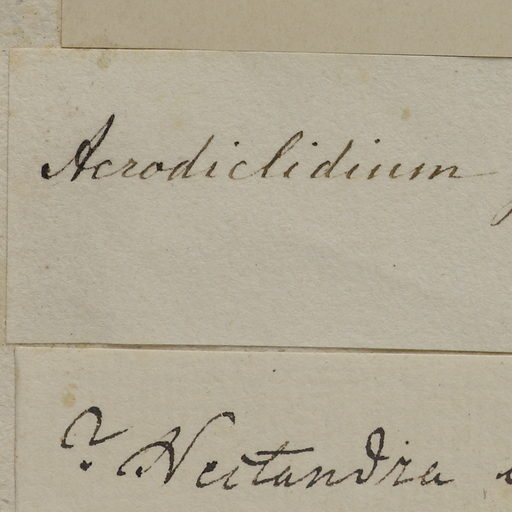 Acrodiclidium
? Nectandra